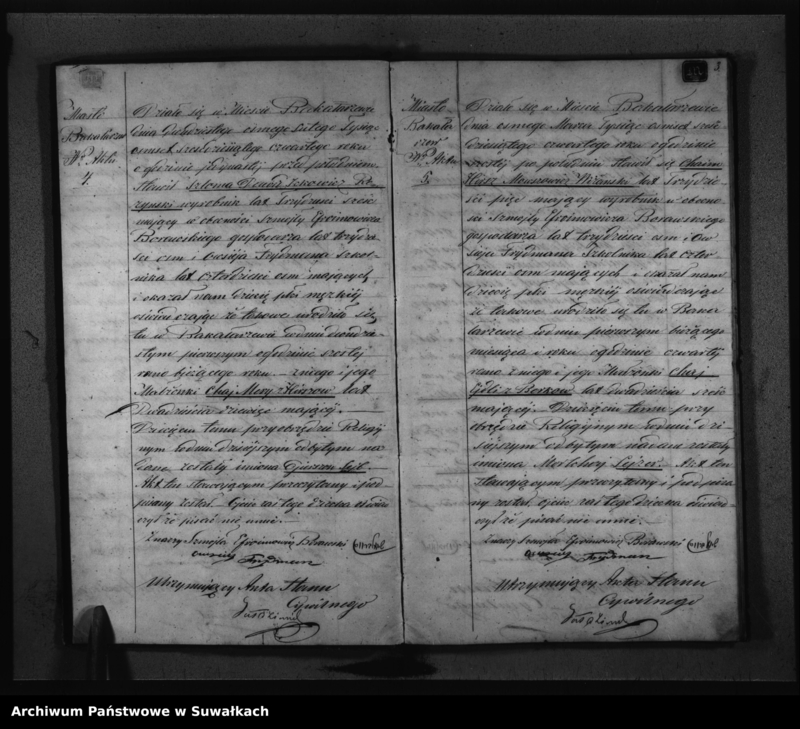 Miasto
Bakałarzew
Nr. Aktu
4.
Działo się w Mieście Bakałarzewie
dnia Dwudziestego ósmego Lutego Tysiąc
osiemset sześćdziesiątego czwartego roku
o godzinie jedynastej przed południem
Stawił Szloma
wyrobnik lat Trzydzieści sześć
mający w obecności Szmujły Efroimowicza
Borawskiego gospodarza lat trzydzie-
ści ośm i Owsieja Frydmana Szkol-
nika lat czterdzieści ośm mających
i okazał nam dziecię płci męzkiej
oświadczając że takowe urodziło się
tu w Bakałarzewie w dniu dwudzie-
stym pierwszym o godzinie szóstej
rano bieżącego roku z niego i jego
Małżonki Chaj Mery z lat
Dwadzieścia dziewięć mającej.
Dziecięciu temu przy obrzędzie Religij-
nym w dniu dzisiejszym odbytym na-
dane zostały imiona
Akt ten stawającym przeczytany i pod-
pisany został. Ojciec zaś tego dziecka oświad-
czył że pisać nie umie.
Szmujło Efroimowicz Borawski
Frydman
Utrzymujący Akta Stanu
Cywilnego
3
Miasto
Bakała-
rzew
Nr. Aktu
5.
Działo się w Mieście Bakałarzewie
dnia ósmego Marca Tysiąc ośmset sześć-
dziesiątego czwartego roku o godzinie
szóstej po południu stawił się Chaim
lat Trzydzie-
ści pięć mający wyrobnik w obecno-
ści Szmujły Efroimowicza Borawskiego
gospodarza lat trzydzieści ośm i Ow-
sieja Frydmana Szkolnika lat czter-
dzieści ośm mających i okazał nam
dziecię płci męzkiej oświadczając
że takowe urodziło się tu w Baka-
łarzewie w dniu pierwszym bieżącego
miesiąca i roku o godzinie czwartej
rano z niego i jego Małżonki Chaj
z Berków lat dwadzieścia sześć
mającej. Dziecięciu temu przy
obrzędzie Religijnym w dniu dzi-
siejszym odbytym nadane zostały
imiona Mortchej Lejzer. Akt ten
stawającym przeczytany i podpisa-
ny został, ojciec zaś tego dziecka oświad-
czył że pisać nie umie.
Szmujło Efroimowicz Borawski
Frydman
Utrzymujący Akta Stanu
Cywilnego
Archiwum Państwowe w Suwałkach